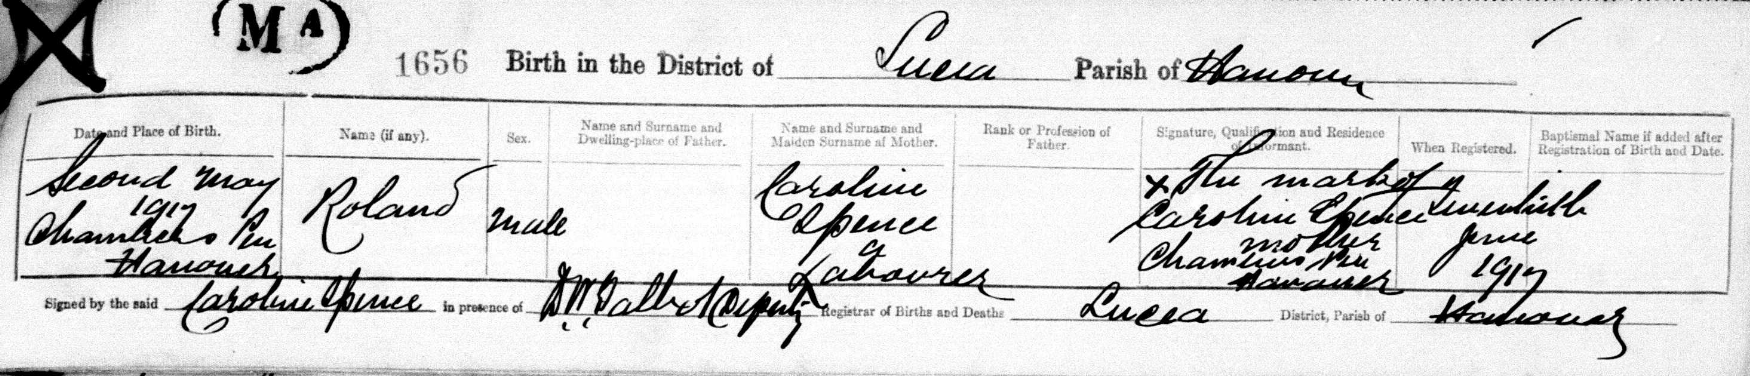 (MA)
1656 Birth in the District of Lucea Parish of Hanover
Date and Place of Birth.
Name (if any).
Sex.
Name and Surname and
Dwelling-place of Father.
Name and Surname and
Maiden Surname of Mother.
Rank or Profession of
Father.
Signature, Qualification and Residence
of Informant.
When Registered.
Baptismal Name if added after
Registration of Birth and Date.
Second May
1917
Chambers Pen
Hanover
Roland
Male
Caroline
Spence
a
Labourer
x The mark of
Caroline Spence
mother
Chambers Pen
Hanover
June
1917
Signed by the said Caroline Spence in presence of Deputy Registrar of Births and Deaths Lucea District, Parish of Hanover